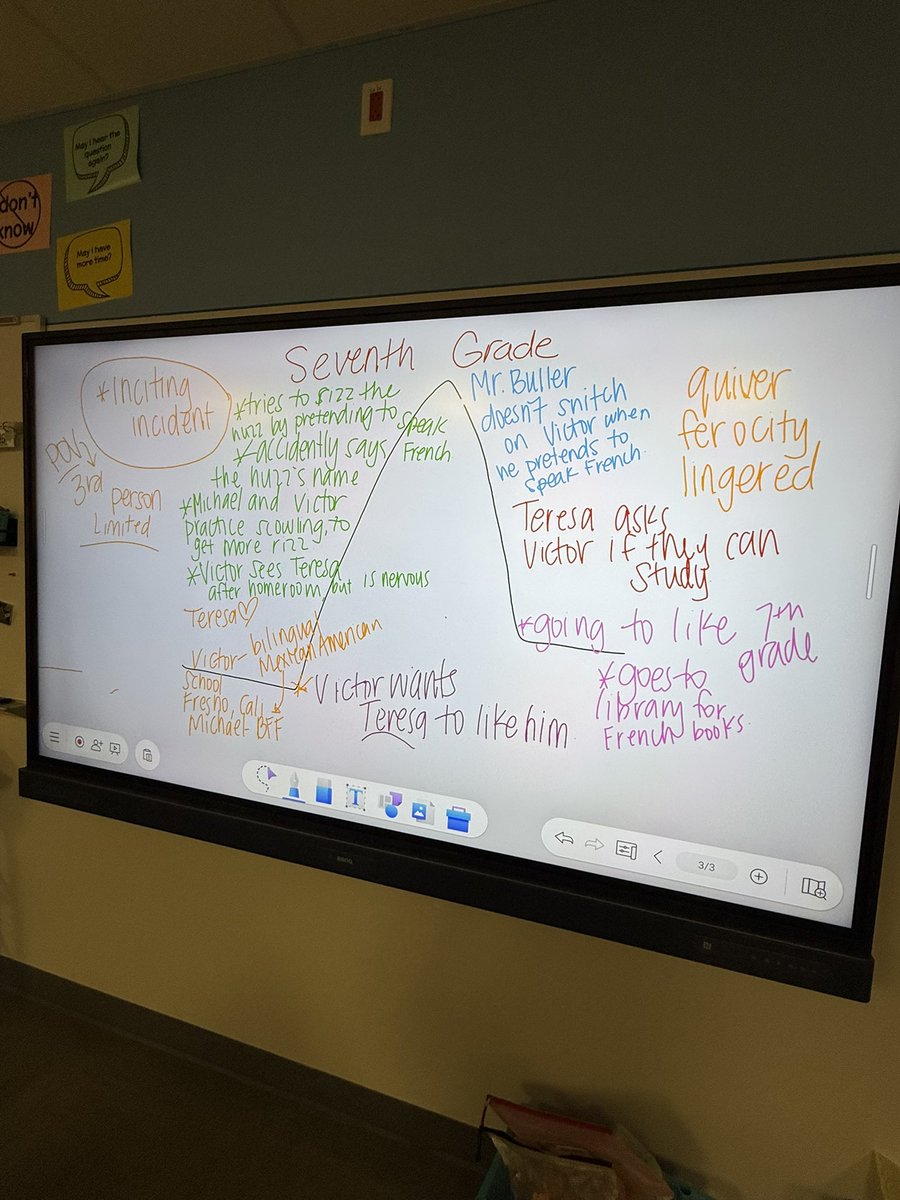 May I hear the
question
again?
don't
know
May I have
more time?
Seventh Grade
*Inciting
incident
POV
3rd person
Limited
*tries to rizz the
huzz by pretending to speak
French
*accidently says
the huzz's name
*Michael and Victor
practice scowling, to
get more rizz
*Victor sees Teresa
after homeroom, but is nervous
Teresa♡
Victor- bilingual
Mexican American
School
Fresno, Cali
Michael- BFF
*Victor wants
Teresa to like him
Mr. Buller
doesn't snitch
on Victor when
he pretends to
speak French.
Teresa asks
Victor if they can
study
*going to like 7th
grade
*goes to
library for
French books.
quiver
ferocity
lingered
T
3/3
BenQ